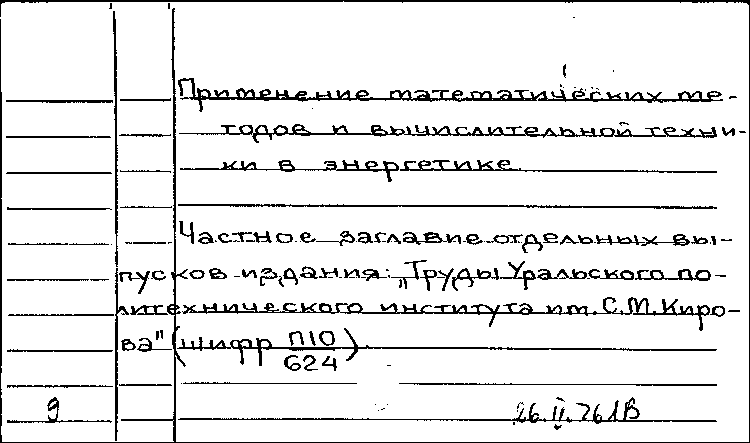 Применение математических ме-
тодов и вычислительной техни-
ки в энергетике.
Частное заглавие отдельных вы-
пусков издания: „Труды Уральского по-
литехнического института им. С.М. Киро-
ва" (шифр П10/624).
9 26.II.76